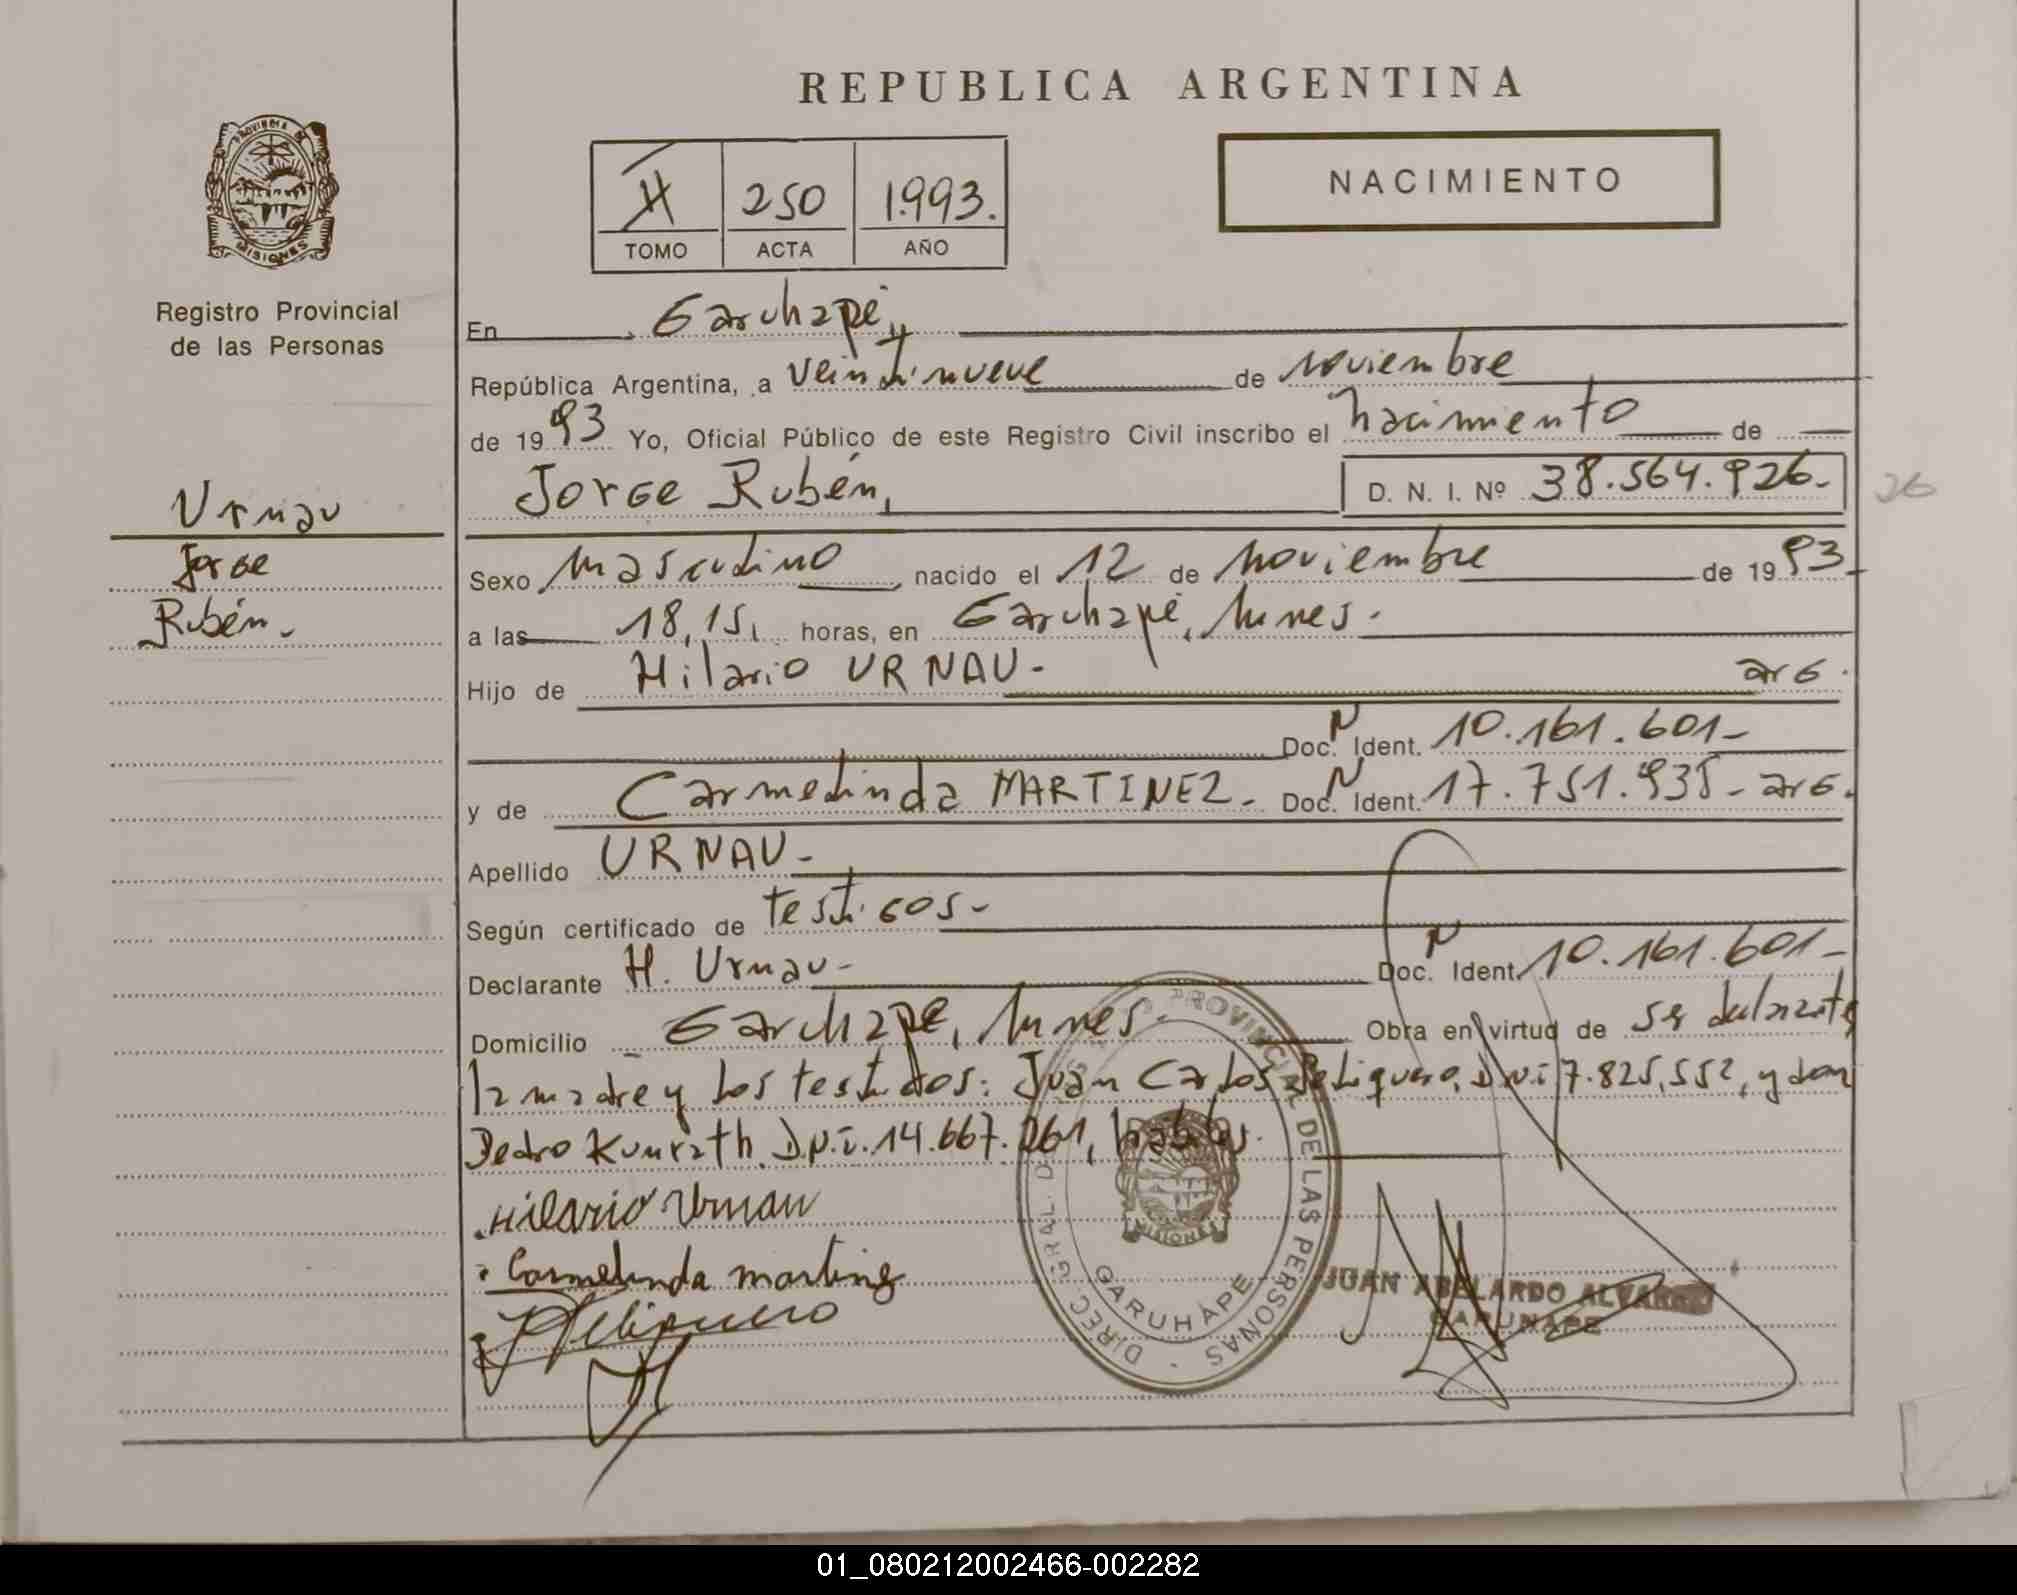 REPUBLICA ARGENTINA
PROVINCIA DE MISIONES
Registro Provincial
de las Personas
II 250 1.993.
TOMO ACTA AÑO
NACIMIENTO
En Garuhapé,
República Argentina, a veintinueve de noviembre
de 1993 Yo, Oficial Público de este Registro Civil inscribo el nacimiento de
Jorge Rubén, D. N. I. Nº 38.564.926.-
26
Urnau
Jorge
Rubén.-
Sexo masculino, nacido el 12 de noviembre de 1993
a las 18,15, horas, en Garuhapé, Mnes.-
Hijo de Hilario URNAU.- arg.
Doc. N Ident. 10.161.601-
y de Carmelinda MARTINEZ.- Doc. N Ident. 17.751.935- arg.
Apellido URNAU-
Según certificado de testigos-
Declarante H. Urnau- Doc. N Ident. 10.161.601-
Domicilio Garuhapé, Mnes.- Obra en virtud de ser declarante
la madre y los testigos: Juan Carlos Peliquero, D.N.i 7.825,552, y don
Pedro Kunrath D.N.i. 14.667.261, hábiles.
Hilario Urnau
Carmelinda martinez
Peliquero
DIREC. GRAL. PROVINCIAL DE LAS PERSONAS
MISIONES
GARUHAPE
JUAN ABELARDO ALVAREZ
GARUHAPE
01_080212002466-002282